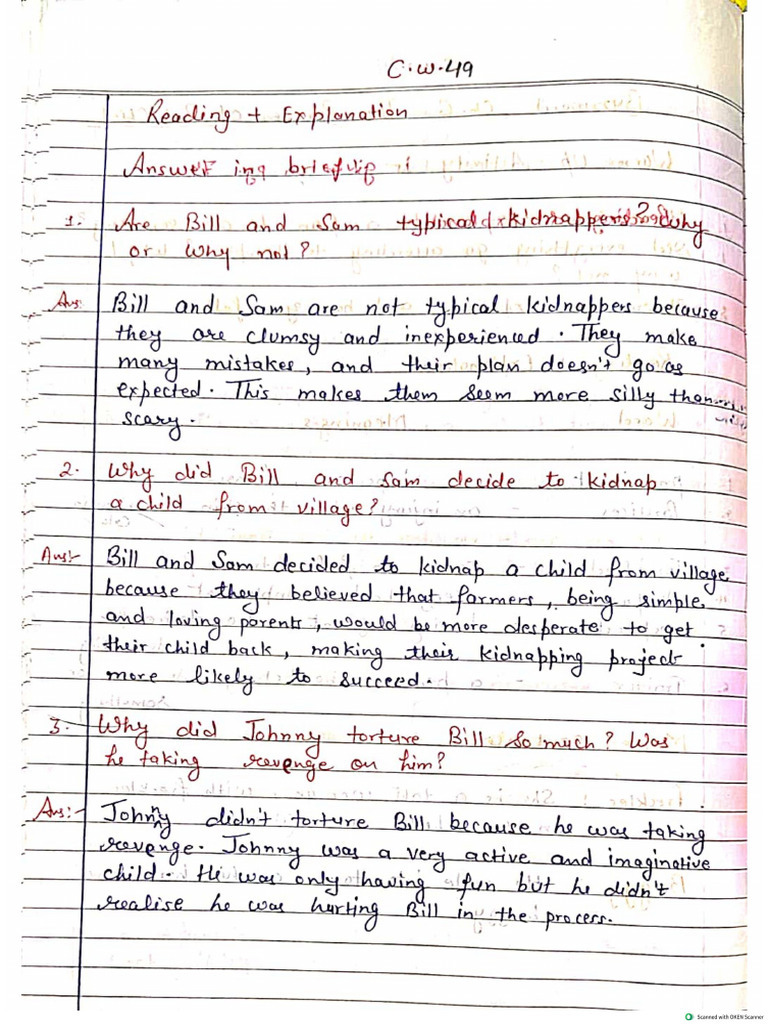 C.W.49
Reading + Explanation
Answer ing briefly
1. Are Bill and Sam typical kidnappers? Why
or Why not?
Ans: Bill and Sam are not typical kidnappers because
they are clumsy and inexperienced. They make
many mistakes, and their plan doesn't go as
expected. This makes them seem more silly than
scary.
2. Why did Bill and Sam decide to kidnap
a child from village?
Ans:- Bill and Sam decided to kidnap a child from village
because they believed that farmers, being simple
and loving parents, would be more desperate to get
their child back, making their kidnapping project
more likely to succeed.
3. Why did Johnny torture Bill so much? Was
he taking revenge on him?
Ans:- Johnny didn't torture Bill because he was taking
revenge. Johnny was a very active and imaginative
child. He was only having fun but he didn't
realise he was hurting Bill in the process.
Scanned with OKEN Scanner